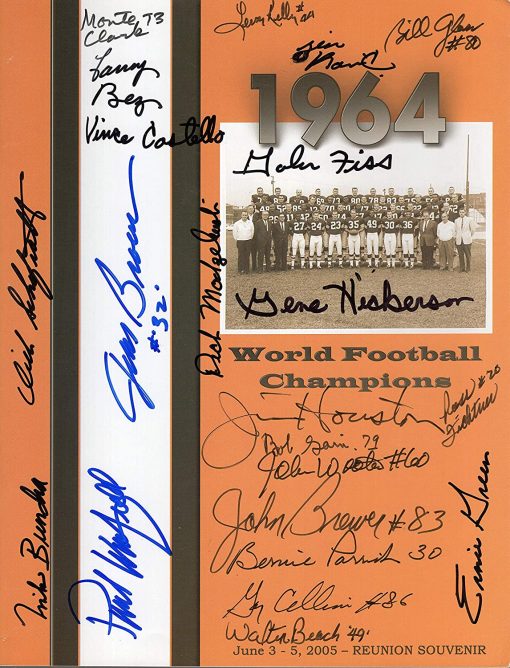 Monte 73
Clark
Larry
Bez
Vince Costello
Leroy Kelly #44
Jim
Bill Glass
#80
1964
Galen Fiss
Dick Schafrath
Jim Brown
#32
Dick Modzelewski
Gene Hickerson
World Football
Champions
Jim Houston
Ross #20
Fichtner
Bob Gain 79
John Wooten #60
John Brewer #83
Bernie Parrish 30
Mike Bundra
Paul Warfield
Ernie Green
Gary Collins #86
Walter Beach '49'
June 3 - 5, 2005 – REUNION SOUVENIR